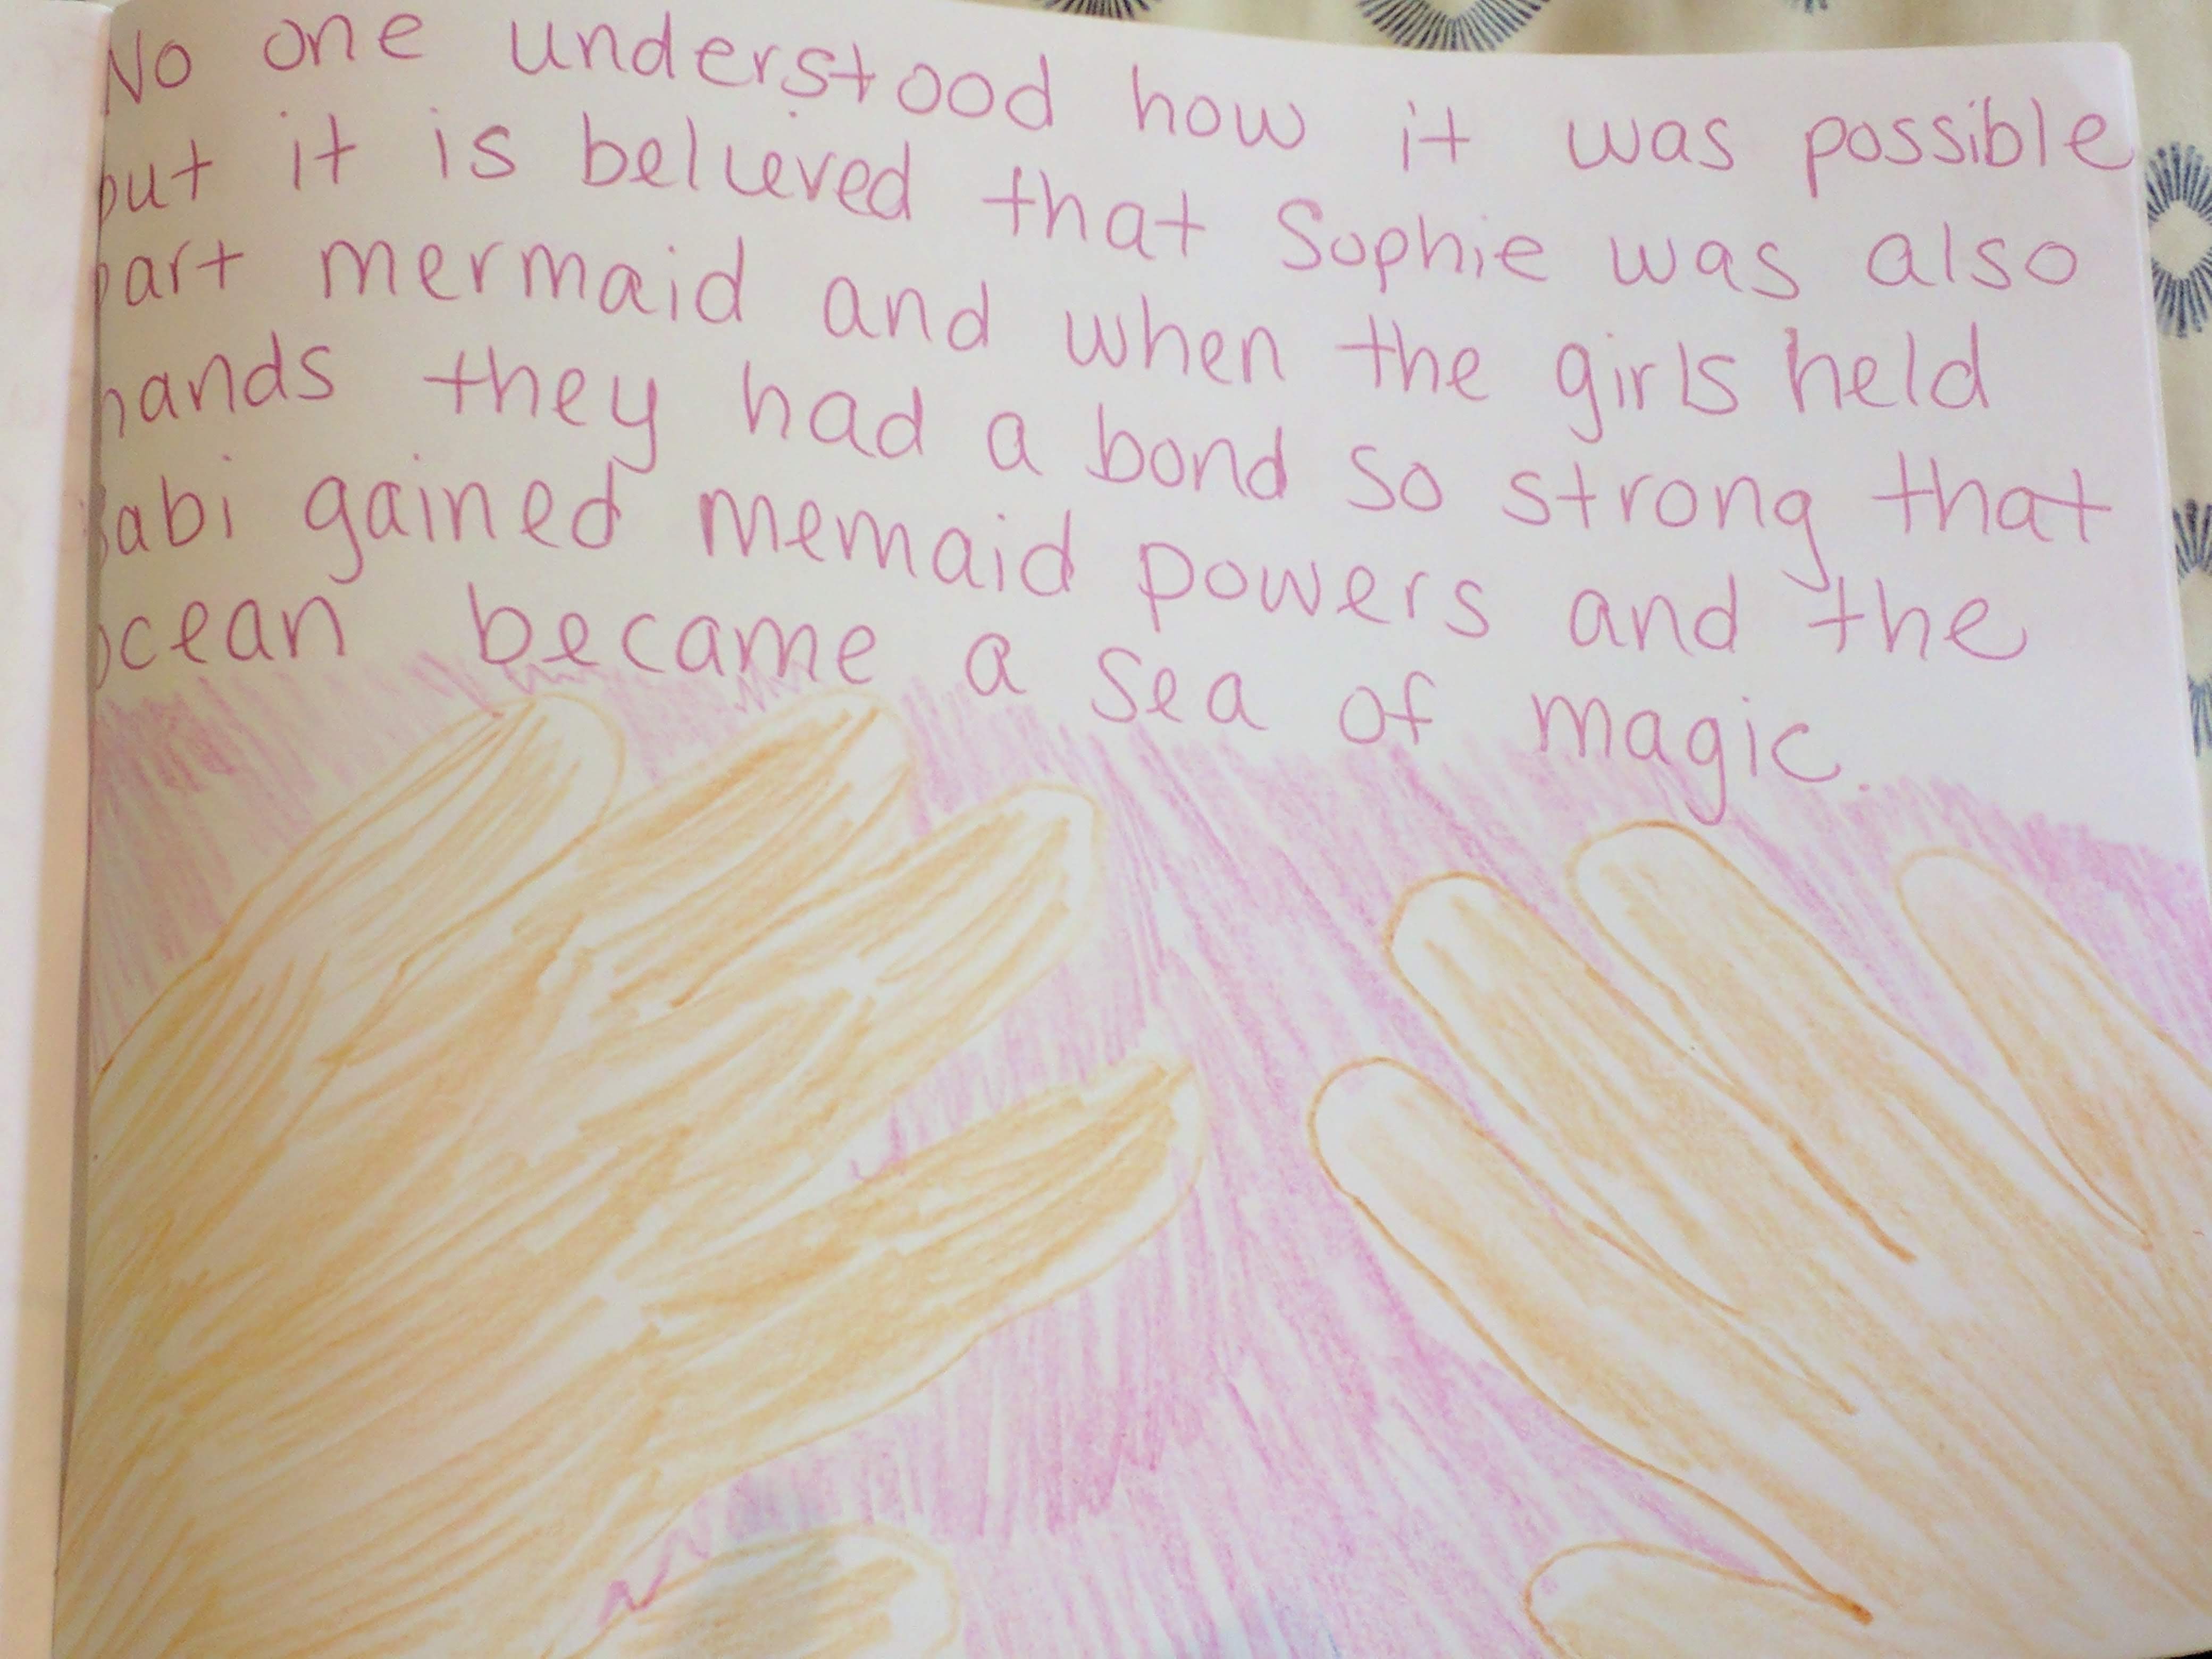 No one understood how it was possible
but it is believed that Sophie was also
part mermaid and when the girls held
hands they had a bond so strong that
abi gained memaid powers and the
ocean became a sea of magic.